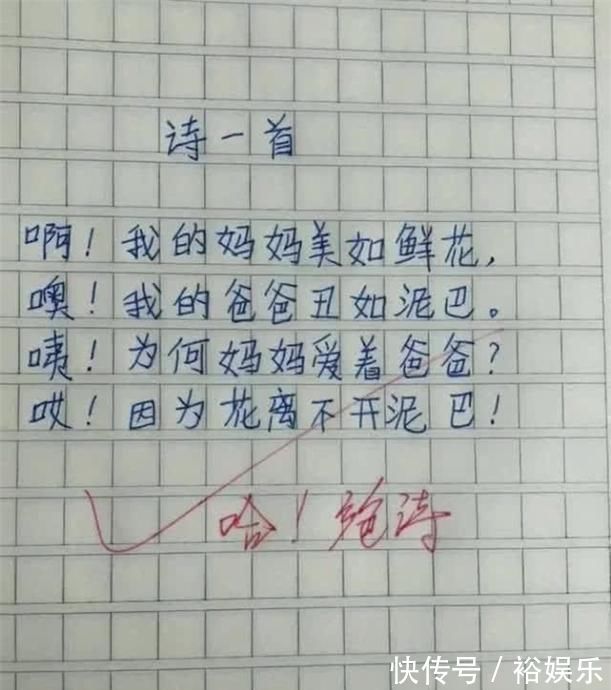 诗一首
啊！我的妈妈美如鲜花，
噢！我的爸爸丑如泥巴。
咦！为何妈妈爱着爸爸？
哎！因为花离不开泥巴！
哈！绝诗
快传号／裕娱乐